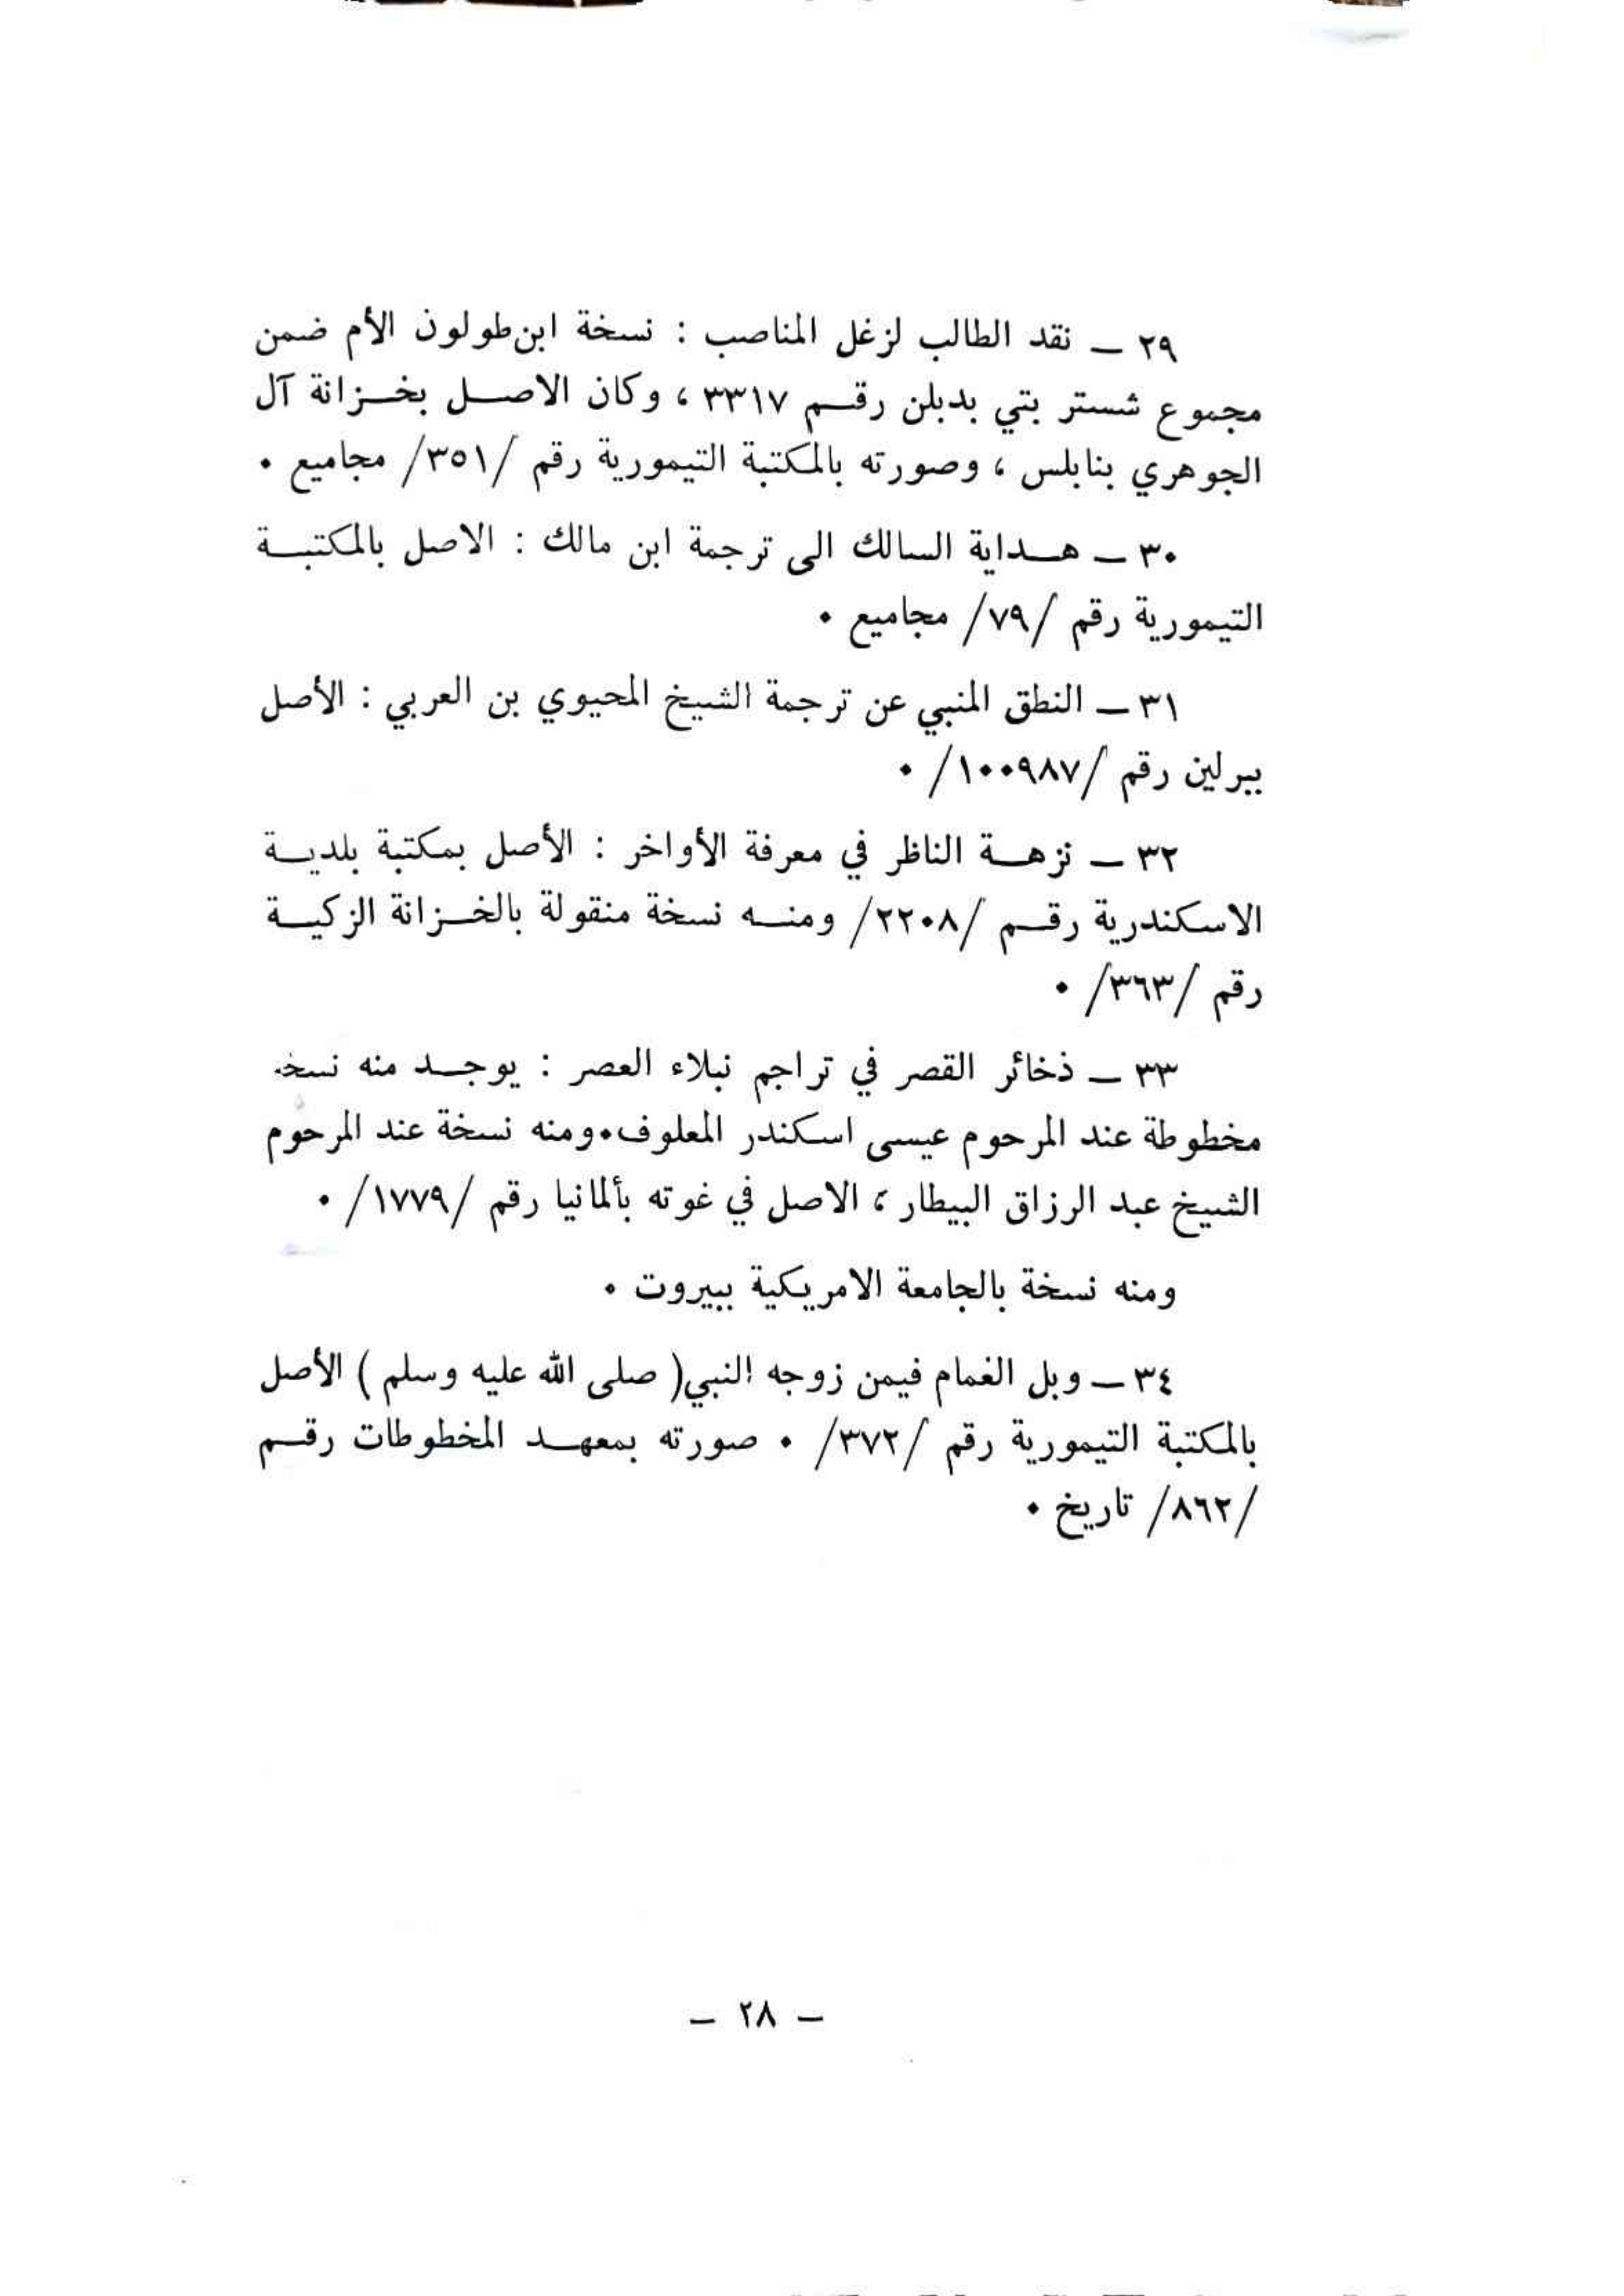 ٢٩ ــ نقد الطالب لزغل المناصب : نسخة ابن طولون الأم ضمن
مجموع شستر بتي بدبلن رقم ٣٣١٧ ، وكان الاصل بخزانة آل
الجوهري بنابلس ، وصورته بالمكتبة التيمورية رقم /٣٥١/ مجاميع ٠
٣٠ ــ هداية السالك الى ترجمة ابن مالك : الاصل بالمكتبة
التيمورية رقم /٧٩/ مجاميع ٠
٣١ ــ النطق المنبي عن ترجمة الشيخ المحيوي بن العربي : الأصل
ببرلين رقم /١٠٠٩٨٧/ ٠
٣٢ ــ نزهة الناظر في معرفة الأواخر : الأصل بمكتبة بلدية
الاسكندرية رقم /٢٢٠٨/ ومنه نسخة منقولة بالخزانة الزكية
رقم /٣٦٣/ ٠
٣٣ ــ ذخائر القصر في تراجم نبلاء العصر : يوجد منه نسخة
مخطوطة عند المرحوم عيسى اسكندر المعلوف٠ومنه نسخة عند المرحوم
الشيخ عبد الرزاق البيطار ، الاصل في غوته بألمانيا رقم /١٧٧٩/ ٠
ومنه نسخة بالجامعة الامريكية ببيروت ٠
٣٤ ــ وبل الغمام فيمن زوجه النبي( صلى الله عليه وسلم ) الأصل
بالمكتبة التيمورية رقم /٣٧٢/ ٠ صورته بمعهد المخطوطات رقم
/٨٦٢/ تاريخ ٠
– ٢٨ –